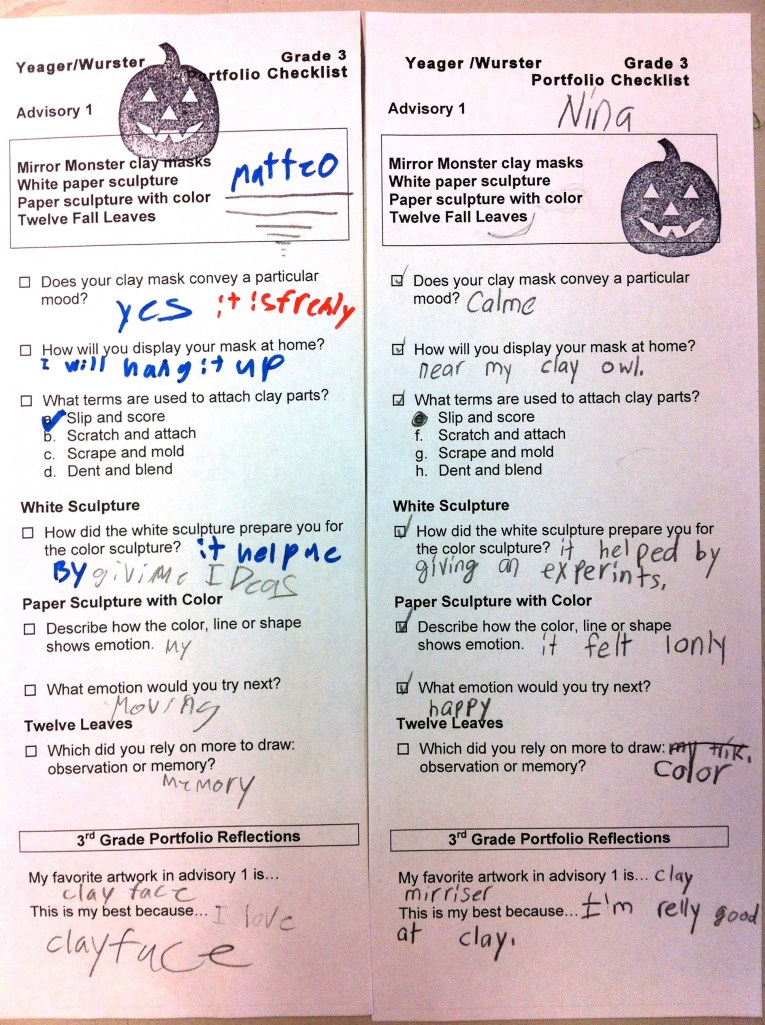 Yeager/Wurster Grade 3
Portfolio Checklist
Advisory 1
Mirror Monster clay masks
White paper sculpture
Paper sculpture with color
Twelve Fall Leaves
Matteo
☐ Does your clay mask convey a particular
mood? yes it is frenly
☐ How will you display your mask at home?
I will hang it up
☐ What terms are used to attach clay parts?
a. Slip and score
b. Scratch and attach
c. Scrape and mold
d. Dent and blend
White Sculpture
☐ How did the white sculpture prepare you for
the color sculpture? it help me
By giving me IDeas
Paper Sculpture with Color
☐ Describe how the color, line or shape
shows emotion. My
☐ What emotion would you try next?
Moving
Twelve Leaves
☐ Which did you rely on more to draw:
observation or memory?
Memory
3rd Grade Portfolio Reflections
My favorite artwork in advisory 1 is...
clay face
This is my best because... I love
clayface
Yeager /Wurster Grade 3
Portfolio Checklist
Advisory 1 Nina
Mirror Monster clay masks
White paper sculpture
Paper sculpture with color
Twelve Fall Leaves
☑ Does your clay mask convey a particular
mood? Calme
☑ How will you display your mask at home?
near my clay owl.
☑ What terms are used to attach clay parts?
Slip and score
f. Scratch and attach
g. Scrape and mold
h. Dent and blend
White Sculpture
☑ How did the white sculpture prepare you for
the color sculpture? it helped by
giving an experints.
Paper Sculpture with Color
☑ Describe how the color, line or shape
shows emotion. it felt lonly
☑ What emotion would you try next?
happy
Twelve Leaves
☐ Which did you rely on more to draw:
observation or memory? Color
3rd Grade Portfolio Reflections
My favorite artwork in advisory 1 is... clay
mirriser
This is my best because... I'm relly good
at clay.